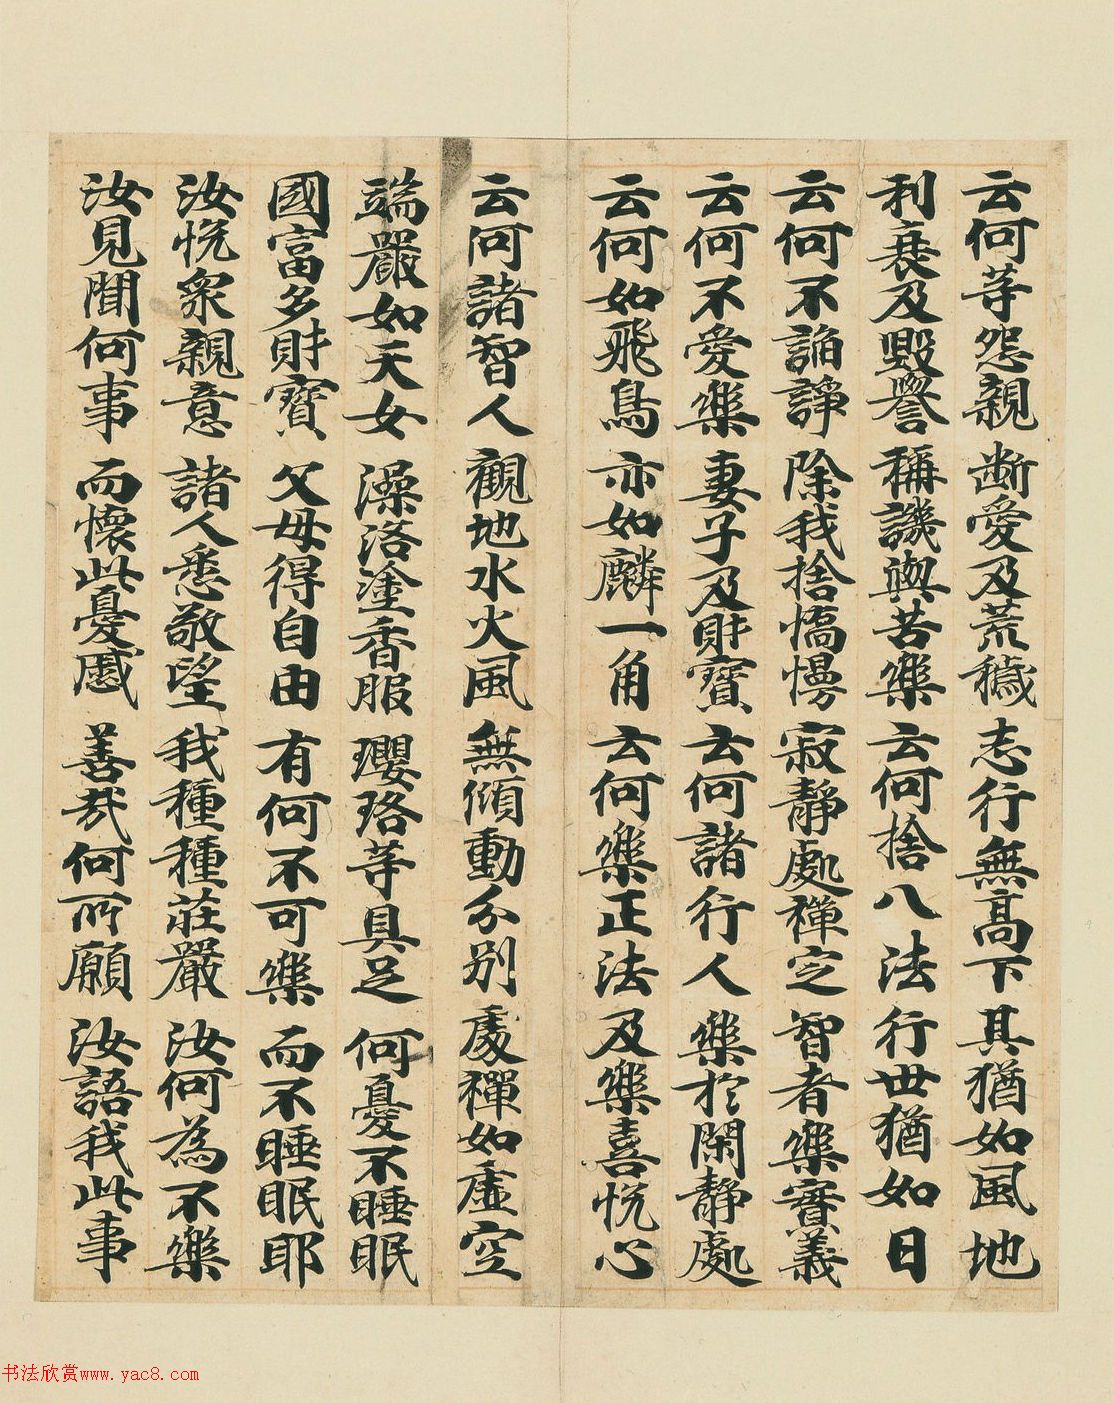 云何等怨親 断愛及荒穢 志行無高下 其猶如風地
利衰及毀譽 稱譏與苦樂 云何捨八法 行世猶如日
云何不諂諍 除我捨憍慢 寂靜處禪定 智者樂實義
云何不愛樂 妻子及財寶 云何諸行人 樂於閑靜處
云何如飛鳥 亦如麟一角 云何樂正法 及樂喜悅心
云何諸智人 觀地水火風 無傾動分别 處禪如虛空
端嚴如天女 澡浴塗香服 瓔珞等具足 何憂不睡眠
國富多財寶 父母得自由 有何不可樂 而不睡眠耶
汝悅衆親意 諸人悉敬望 我種種莊嚴 汝何為不樂
汝見聞何事 而懷此憂慼 善哉何所願 汝語我此事
书法欣赏www.yac8.com